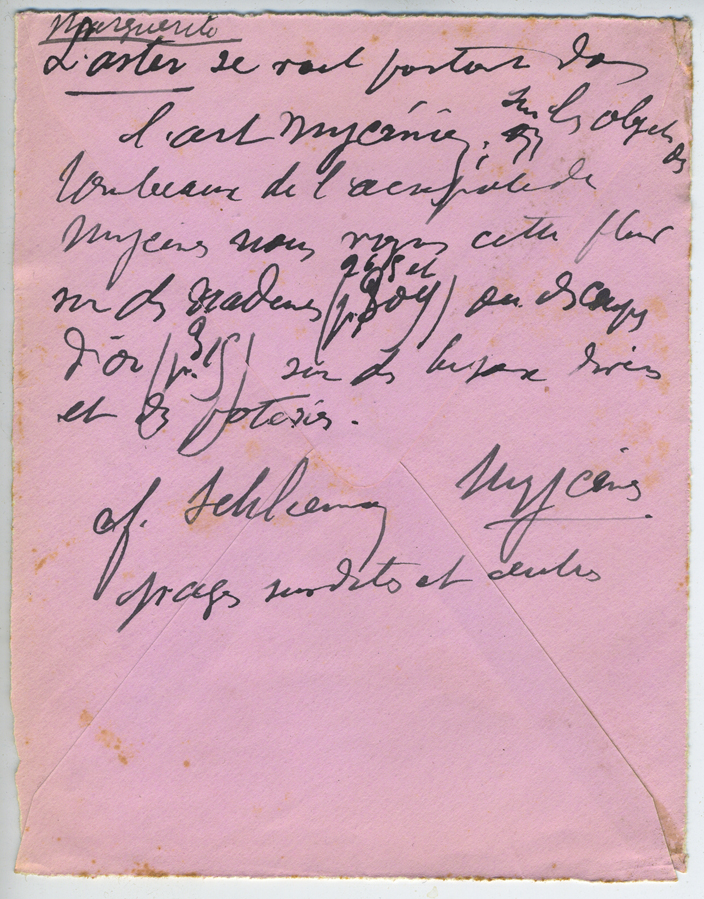 Marguerite
L'aster se voit partout dans
l'art Mycénien; sur les objets des
tombeaux de l'acropole de
Mycènes nous voyons cette fleur
sur des diadèmes (p. 304) ou des coupes
d'or (p. 315) sur des bijoux divers
et des poteries.
cf. Schliemann Mycènes
pages susdites et autres